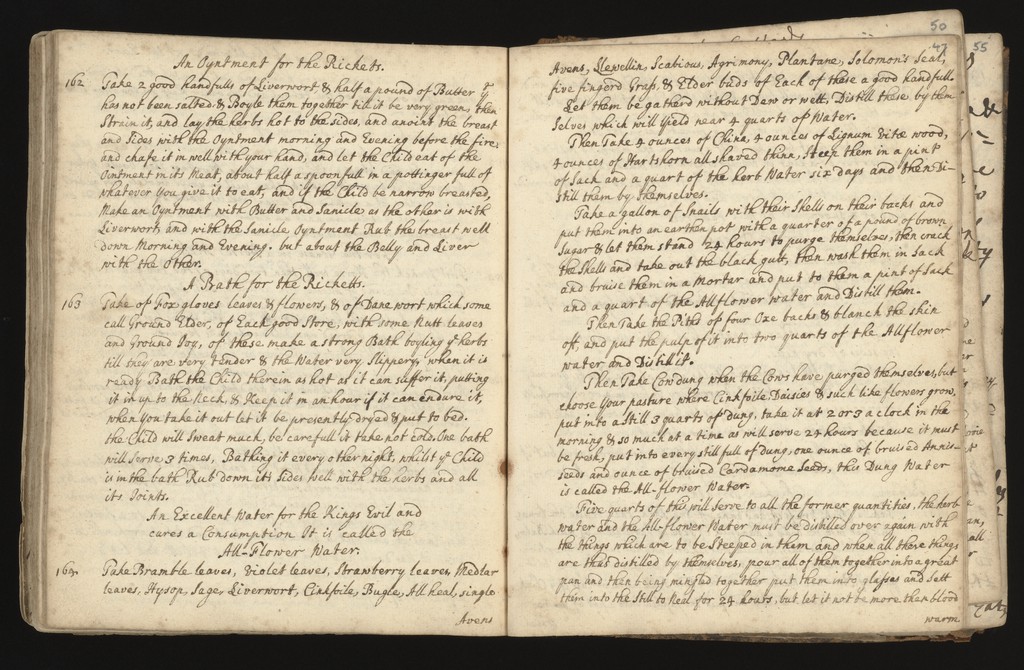 An Oyntment for the Rickets.
162 Take 2 good handfulls of Liverwort & half a pound of Butter yt
has not been salted & Boyle them together till it be very green, then
Strain it, and lay the herbs hot to the sides, and anoint the breast
and Sides with the Oyntment morning and Evening before the fire,
and chafe it in well with your hand, and let the Child eat of the
Ointment in its Meat, about half a spoonfull in a pottinger full of
whatever You give it to eat, and if the Child be narrow breasted,
Make an Oyntment with Butter and Sanicle as the other is with
Liverwort, and with the Sanicle Oyntment Rub the breast well
down Morning and Evening. but about the Belly and Liver
with the Other.
A Bath for the Ricketts.
163 Take of Fox gloves leaves & flowers, & of Dane wort which some
call Ground Elder, of Each good Store, with some Nutt leaves
and Ground Ivy, of these make a strong Bath boyling ye herbs
till they are very tender & the Water very Slippery, when it is
ready Bath the Child therein as hot as it can suffer it, putting
it in up to the Neck, & Keep it in an hour if it can endure it,
when you take it out let it be presently dryed & put to bed.
the Child will Sweat much, be carefull it take not cold, One bath
will serve 3 times, Bathing it every other night, whilst ye Child
is in the bath Rub down its Sides well with the herbs and all
its Joints.
An Excellent Water for the Kings Evil and
cures a Consumption It is called the
All-Flower Water.
164 Take Bramble leaves, Violet leaves, Strawberry leaves, Medlar
leaves, Hysop, Sage, Liverwort, Cinkfoile, Bugle, All heal, single
Avens
50
55
Avens, Llewellin, Scabious, Agrimony, Plantane, Solomon's Seal,
five fingerd Grass, & Elder buds of Each of these a good handfull.
Let them be gatherd without Dew or wett, Distill these by them
selves which will yield near 4 quarts of Water.
Then Take 4 ounces of China, 4 ounces of Lignum Vitæ wood,
4 ounces of Hartshorn all shaved thinn, Steep them in a pint
of Sack and a quart of the herb Water six days and then Di-
still them by themselves.
Take a gallon of Snails with their Shells on their backs and
put them into an earthen pot with a quarter of a pound of brown
Sugar & let them stand 24 hours to purge themselves, then crack
the Shells and take out the black gutt, then wash them in Sack
and bruise them in a Mortar and put to them a pint of Sack
and a quart of the Allflower water and Distill them.
Then Take the Piths of four Oxe backs & blanch the skin
off, and put the pulp of it into two quarts of the Allflower
water and Distill it.
Then Take Cowdung when the Cows have purged themselves, but
choose Your pasture where Cinkfoile Daisies & such like flowers grow,
put into a Still 3 quarts of dung, take it at 2 or 3 a clock in the
morning & so much at a time as will serve 24 hours because it must
be fresh, put into every still full of dung, one ounce of bruised Annis-
seeds and ounce of bruised Cardamome Seeds, this Dung Water
is called the All-flower Water.
Five quarts of this will serve to all the former quantities, the herb
water and the All-flower Water must be distilled over again with
the things which are to be Steeped in them and when all these things
are thus distilled by themselves, pour all of them together into a great
pan and then being mingled together put them into glasses and Sett
them into the Still to Heal for 24 hours, but let it not be more then blood
warm